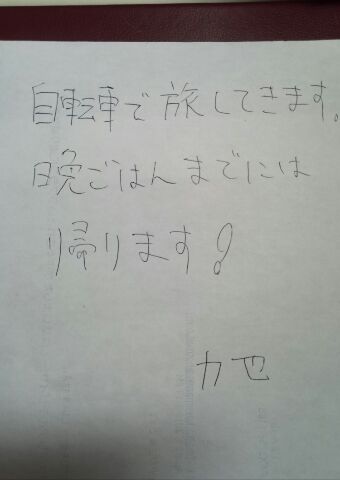 自転車で旅してきます。
晩ごはんまでには
帰ります!
力也